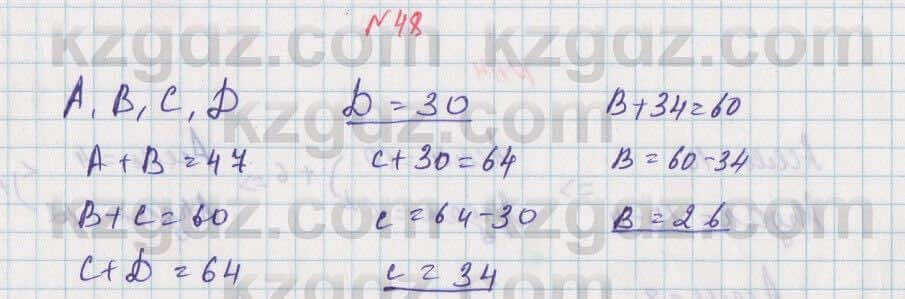 №48
A, B, C, D
A + B = 47
B + C = 60
C + D = 64
D = 30
C + 30 = 64
C = 64 - 30
C = 34
B + 34 = 60
B = 60 - 34
B = 26
kzgdz.com kzgdz.com
kzgdz.com
kzgdz.com kzgdz.com